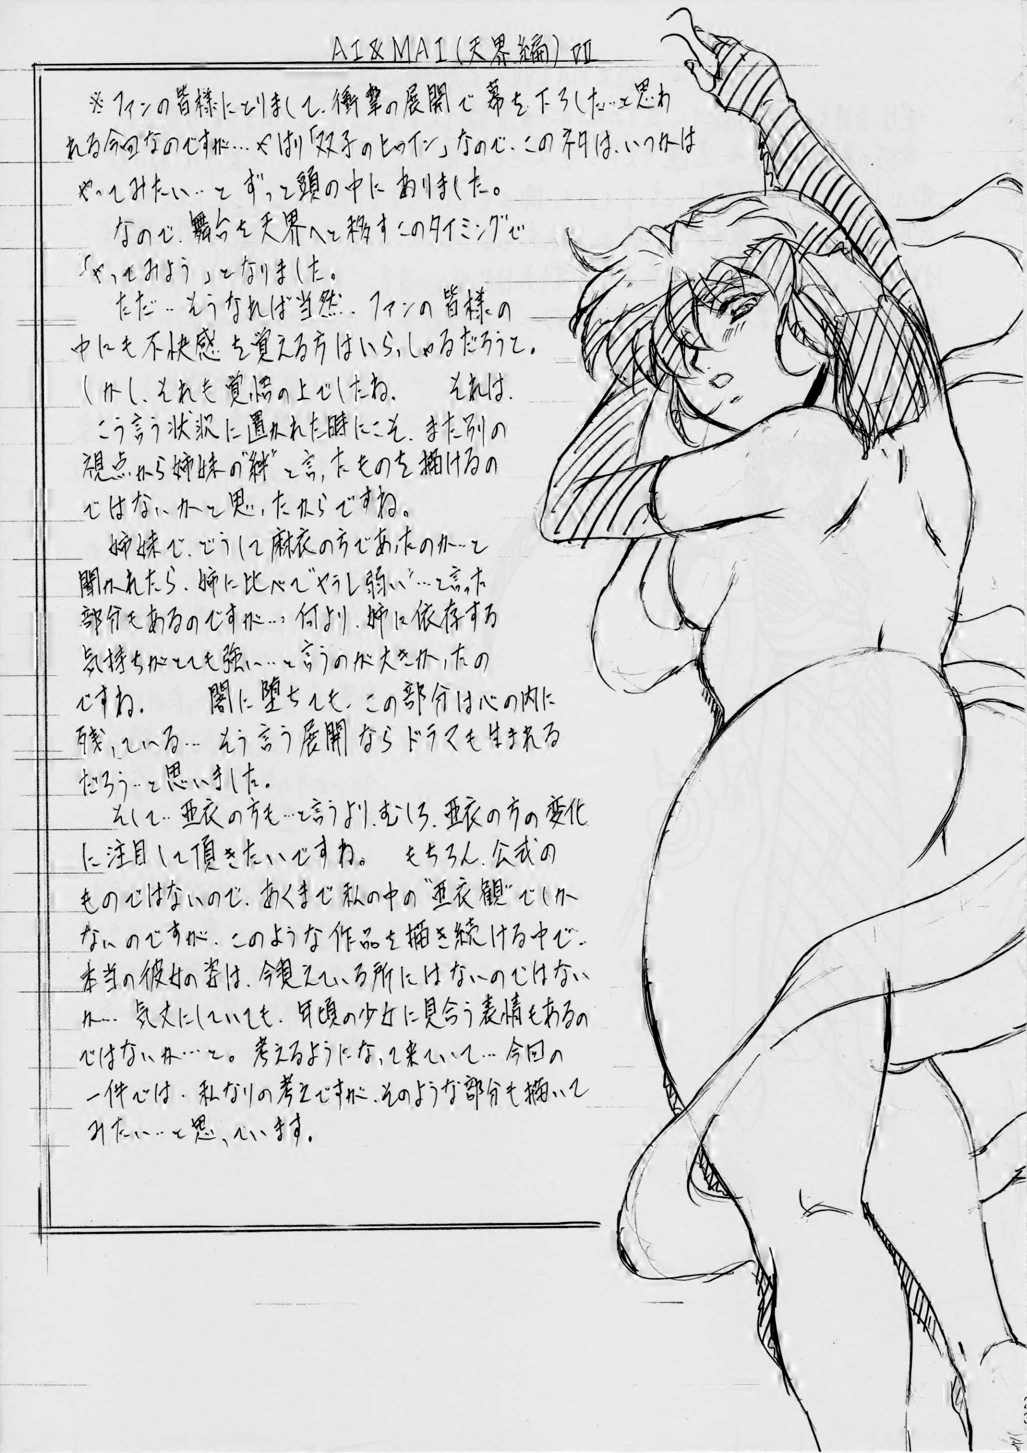 AI&MAI(天界編)VII
※ファンの皆様にとりまして、衝撃の展開で幕を下ろした…と思わ
れる今回なのですが…やはり「双子のヒロイン」なので、このネタは、いつかは
やってみたい…とずっと頭の中にありました。
なので、舞台を天界へと移すこのタイミングで
「やってみよう」となりました。
ただ…そうなれば当然、ファンの皆様の
中にも不快感を覚える方はいらっしゃるだろうと。
しかし、それも覚悟の上でしたね。 それは、
こう言う状況に置かれた時にこそ、また別の
視点から姉妹の“絆”と言ったものを描けるの
ではないかと思ったからですね。
姉妹で、どうして麻衣の方であったのか…と
聞かれたら、姉に比べて“やや弱い”…と言った
部分もあるのですが…、何より、姉に依存する
気持ちがとても強い…と言うのが大きかったの
ですね。 闇に堕ちても、この部分は心の内に
残っている…そう言う展開ならドラマも生まれる
だろう…と思いました。
そして…亜衣の方も…と言うより、むしろ、亜衣の方の変化
に注目して頂きたいですね。 もちろん、公式の
ものではないので、あくまで私の中の“亜衣観”でしか
ないのですが、このような作品を描き続ける中で、
本当の彼女の姿は、今見えている所にはないのではない
か…気丈にしていても、年頃の少女に見合う表情もあるの
ではないか…と。考えるようになって来ていて…今回の
一件では、私なりの考えですが、そのような部分も描いて
みたい…と思っています。